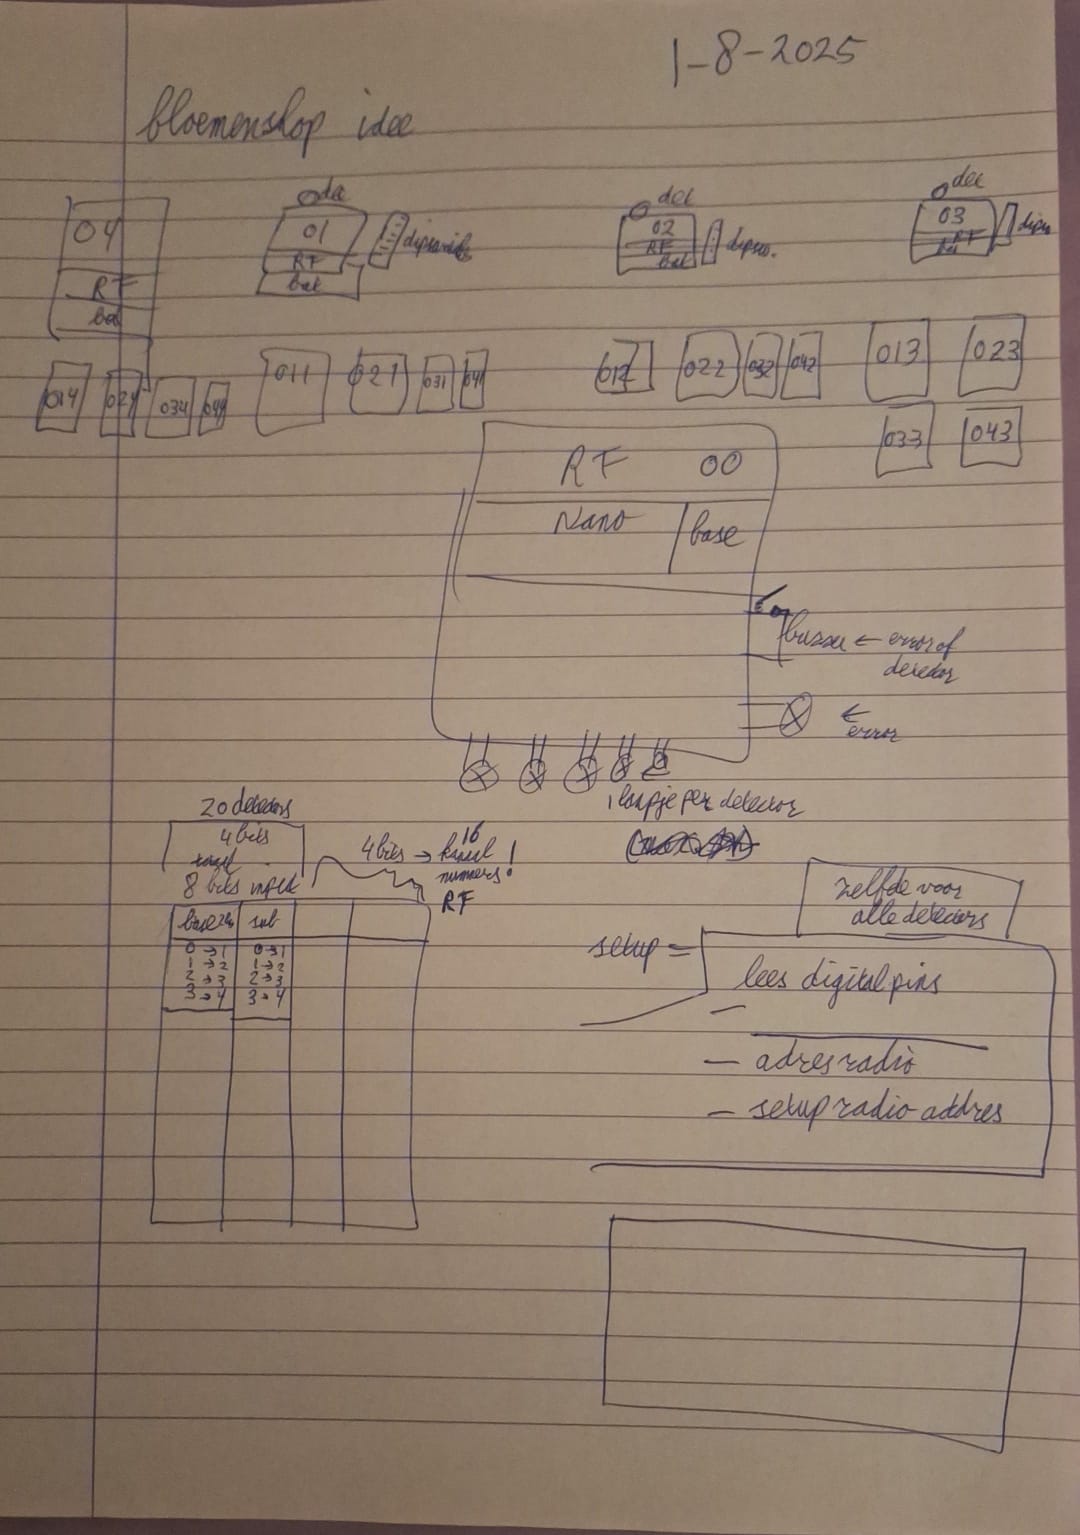 1-8-2025
bloemenshop idee
04
RF
bat
dec
01
RF
bat
dec
02
RF
bat
dipsw.
dec
03
RF
014 024 034 044
011 021 031 041
012 022 032 042
013 023
033 043
RF 00
Nano base
buzzer ← error of
detector
← error
1 lampje per detector
20 detectors
4 bits
8 bits input
4 bits → 16
numers!
RF
base sub
0→1 0→1
1→2 1→2
2→3 2→3
3→4 3→4
zelfde voor
alle detectors
setup =
lees digital pins
— adres radio
— setup radio addres